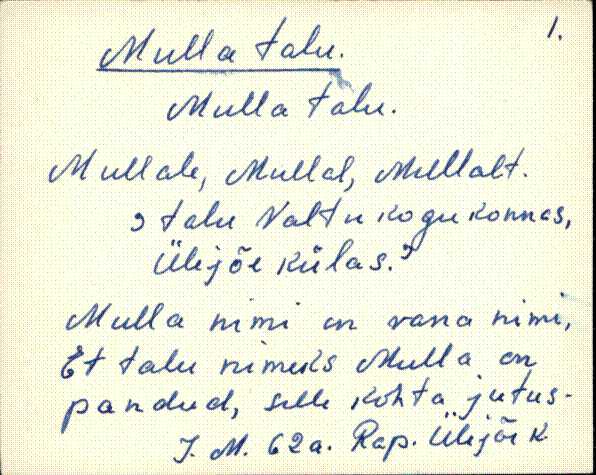 1.
Mulla talu.
Mulla talu.
Mullale, Mullal, Mullalt.
, talu Valtu kogukonnas,
Ülejõe külas.?
Mulla nimi on vana nimi,
Et talu nimeks Mulla on
pandud, selle kohta jutus-
J. M. 62a. Rap. Ülejõe k